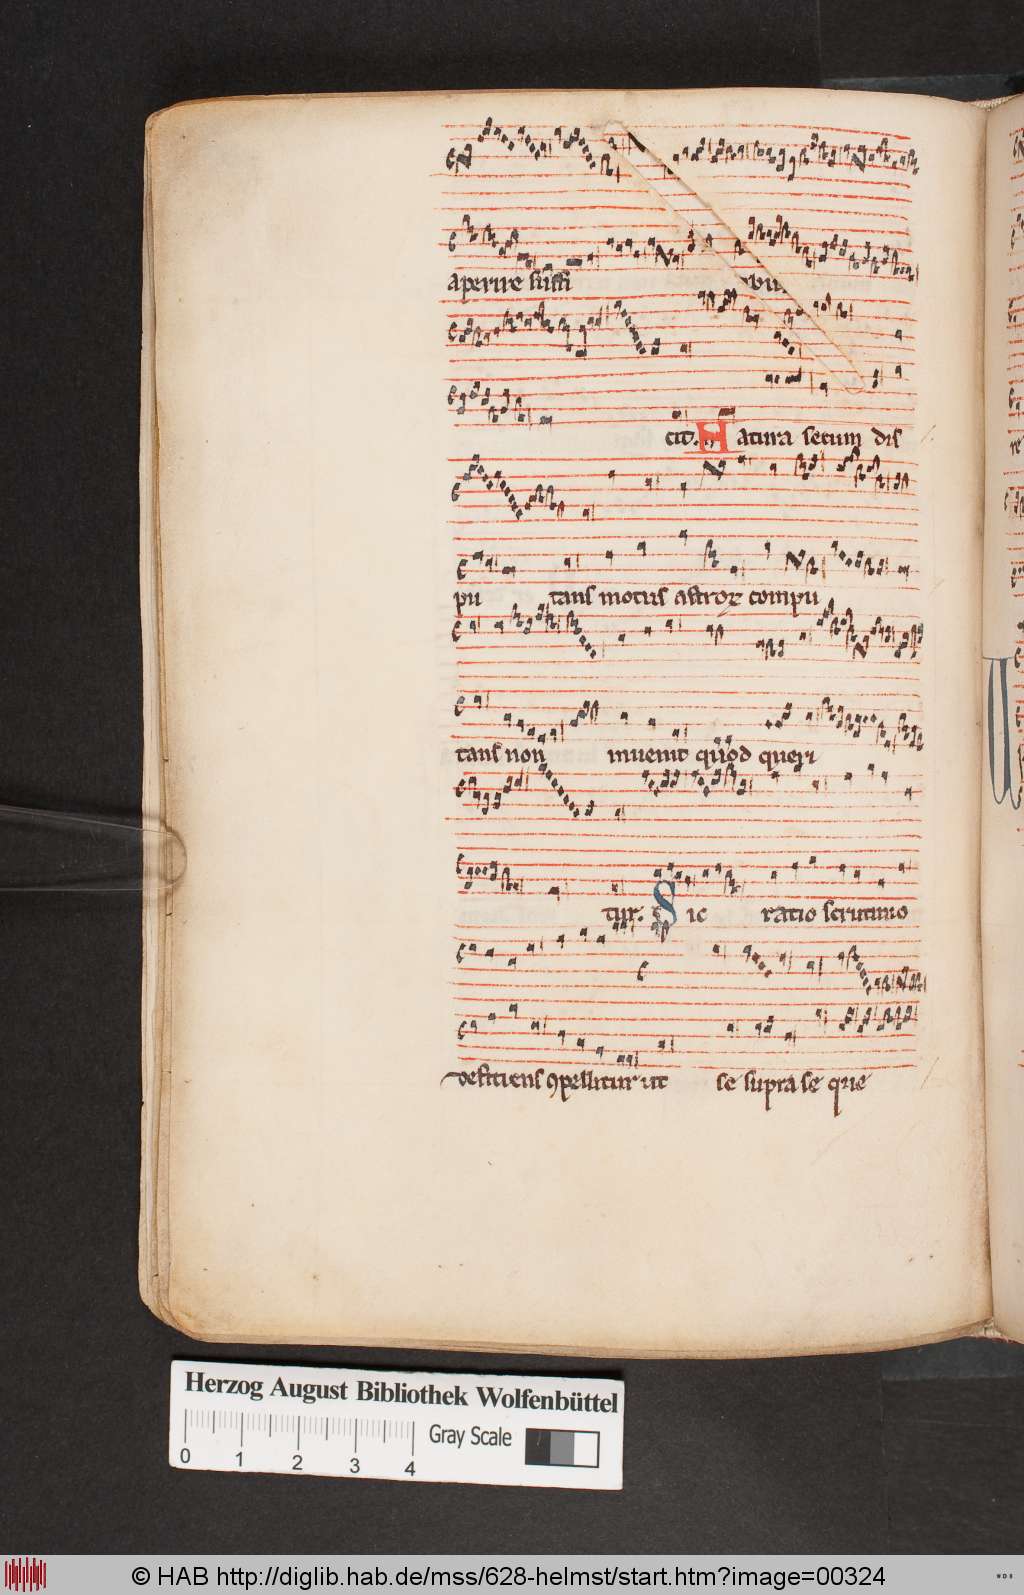 aperire sinu
cit. Natura secum dis
pu tans motus astroꝝ compu
tans non inuenit quod queri
tur. Sic ratio scrutinio
desitiens ꝯpellitur ut se supra se que
Herzog August Bibliothek Wolfenbüttel
Gray Scale
0 1 2 3 4
© HAB http://diglib.hab.de/mss/628-helmst/start.htm?image=00324